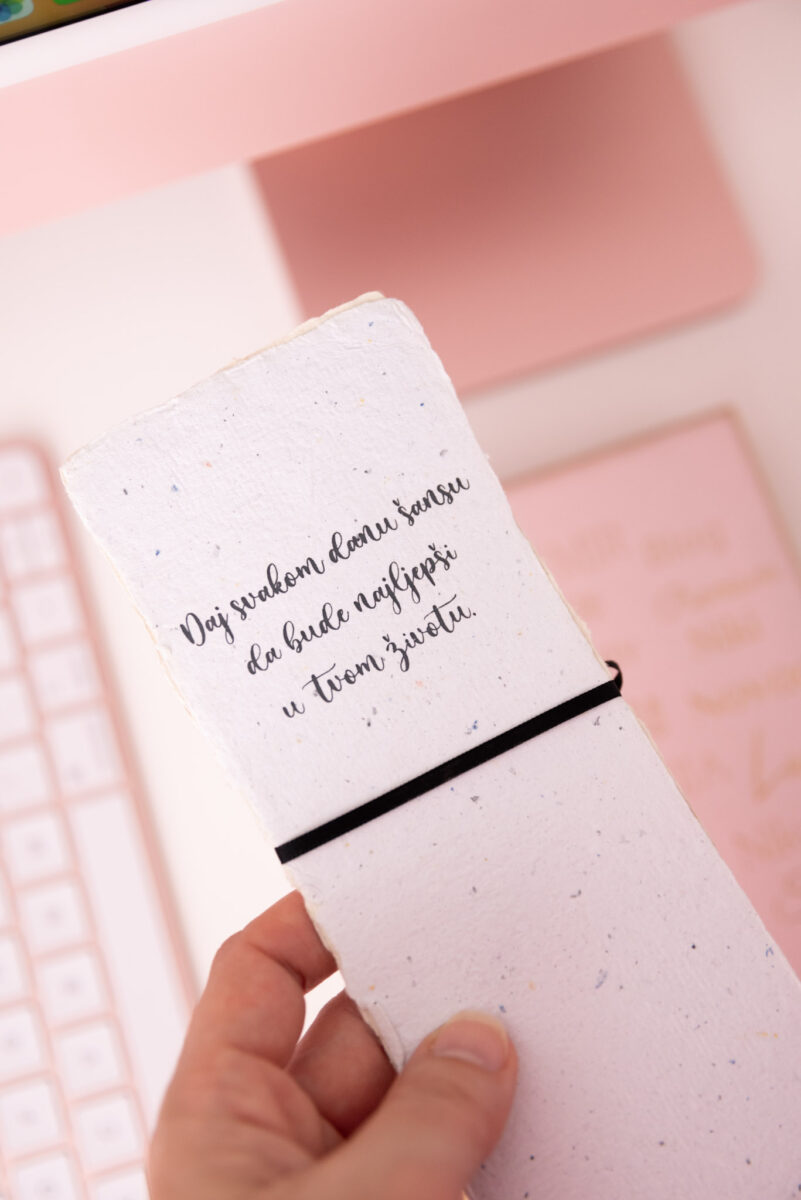 Daj svakom danu šansu
da bude najljepši
u tvom životu.